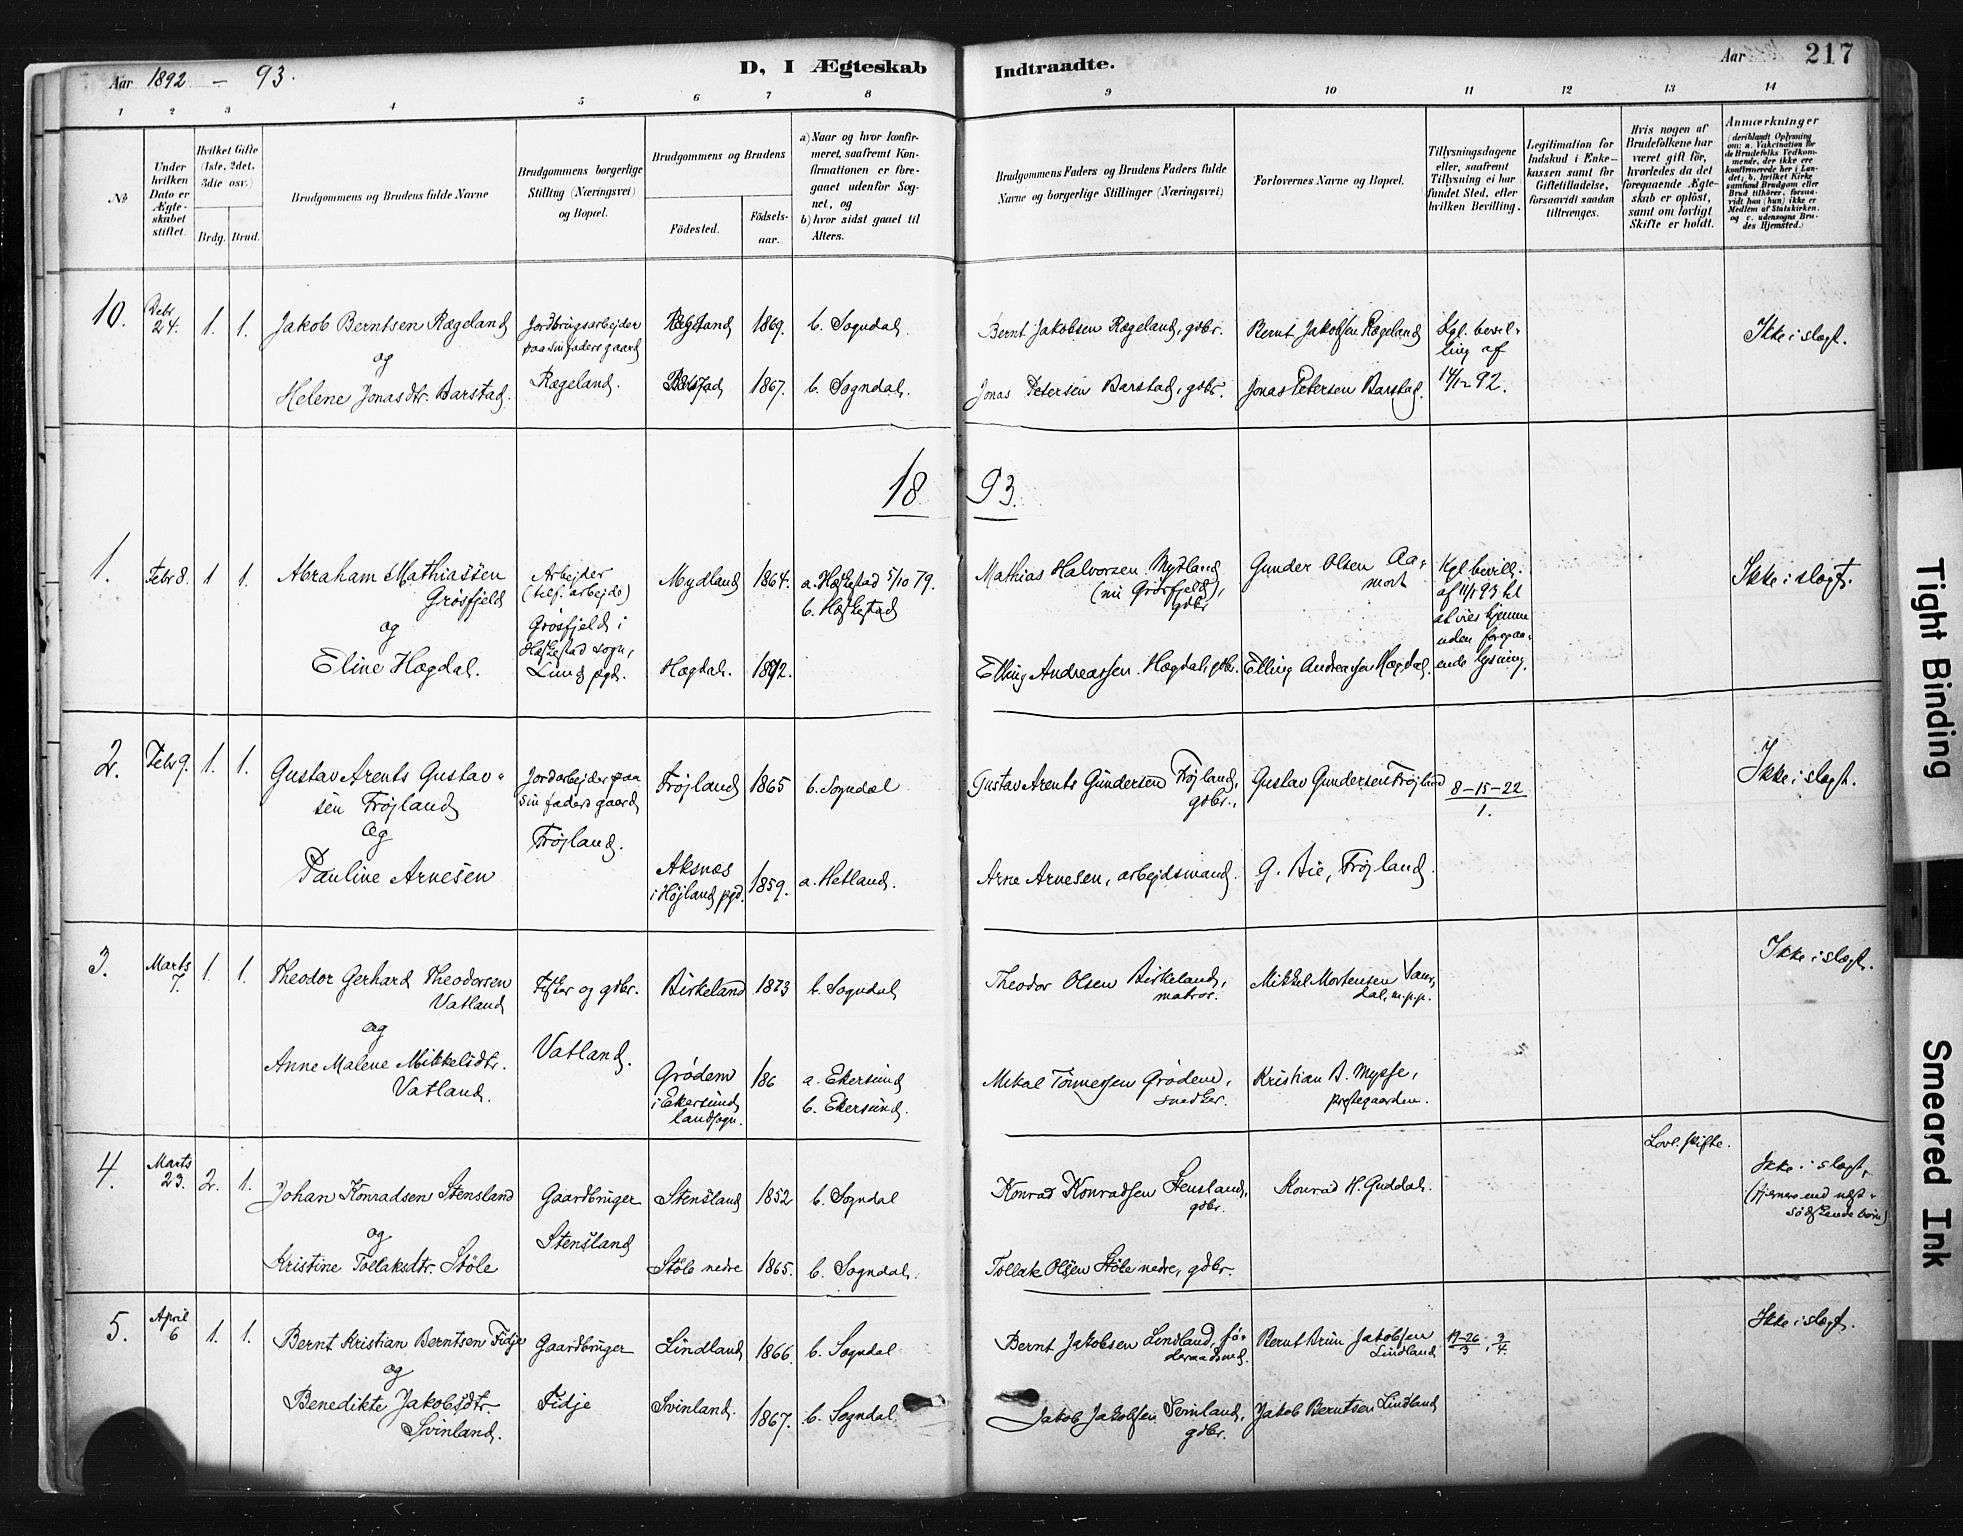 Aar 1892 – 93.
D, I Ægteskab
Indtraadte.
Aar
217
1 2 3 4 5 6 7 8 9 10 11 12 13 14
No
Under hvilken Dato er Ægteskabet stiftet.
Hvilket Gifte (1ste, 2det, 3die osv.)
Brdg. Brud.
Brudgommens og Brudens fulde Navne
Brudgommens borgerlige Stilling (Næringsvei) og Bopæl.
Brudgommens og Brudens
Födested.
Födsels-aar.
a) Naar og hvor konfir-
meret, saafremt Kon-
firmationen er fore-
gaaet udenfor Sog-
net, og
b) hvor sidst gaaet til
Alters.
Brudgommens Faders og Brudens Faders fulde
Navne og borgerlige Stillinger (Næringsvei)
Forlovernes Navne og Bopæl.
Tillysningsdagene
eller, saafremt
Tillysning ei har
fundet Sted, efter
hvilken Bevilling.
Legitimation for
Indskud i Enke-
kassen samt for
Giftetilladelse,
forsaavidt saadan
tiltrænges.
Hvis nogen af
Brudefolkene har
været gift för,
hvorledes da det
foregaaende Ægte-
skab er oplöst,
samt om lovligt
Skifte er holdt.
Anmærkninger
(deriblandt Oplysning
om: a. Vakcination for
de Brudefolks Vedkom-
mende, der ikke ere
konfirmerede her i Lan-
det; b. hvilket Kirke
samfund Brudgom eller
Brud tilhörer, forsaa-
vidt han (hun) ikke er
Medlem af Statskirken,
og c. udensogns Bru-
des Hjemsted.)
10. Debr 24. 1. 1. Jakob Berntsen Rægeland
og
Helene Jonasdtr. Barstad.
Jordbrugsarbejder
paa sin faders gaard
Rægeland.
Rægeland 1869. b. Sogndal.
Barstad 1867. b. Sogndal.
Bernt Jakobsen Rægeland, gdbr.
Jonas Petersen Barstad, gdbr.
Bernt Jakobsen Rægeland
Jonas Petersen Barstad.
Kgl. bevil-
ling af
14/12 92.
Ikke i slægt.
18 93.
1. Febr 8. 1 1. Abraham Mathiassen
Grösfjeld
og
Eline Hægdal.
Arbejder
(tilf. arbejde)
Grösfjeld i
Heskestad sogn,
Lunds pgd.
Mydland 1864. a. Heskestad 5/10 79.
b. Heskestad
Hægdal. 1872.
Mathias Halvorsen Mydland
(nu Grösfjeld),
gdbr.
Elling Andreassen Hægdal, gdbr.
Gunder Olsen Aa-
mot
Elling Andreassen Hægdal.
Kgl bevill.
af 11/1 93 til
at vies hjemme
uden forega-
ende lysning.
Ikke i slægt.
2. Febr 9. 1. 1. Gustav Arents Gustav-
sen Fröjland
og
Pauline Arnesen
Jordarbejder paa
sin faders gaard
Fröjland.
Fröjland 1865 b. Sogndal
Aksnæs
i Höjland pgd. 1859. a. Hetland.
Gustav Arents Gundersen Fröjland,
gdbr.,
Arne Arnesen, arbejdsmand.
Gustav Gundersen Fröjland
G. Bie, Fröjland.
8–15–22
1.
Ikke i slægt.
3. Marts 7. 1. 1. Theodor Gerhard Theodorsen
Vatland
og
Anne Malene Mikkelsdtr.
Vatland.
Fisker og gdbr.
Vatland.
Birkeland 1873 b. Sogndal
Grödem
i Ekersund
landsogn. 186 a. Ekersund
b. Ekersund.
Theodor Olsen Birkeland,
matros.
Mikal Tönnessen Grödem,
snedker.
Mikkel Mortensen
dal, m.p.p.
Kristian A. Mysse,
prestegaarden.
Ikke i slægt.
4. Marts 23. 2. 1. Johan Konradsen Stensland
og
Kristine Tollaksdtr. Stöle
Gaardbruger
Stensland
Stensland 1852 b. Sogndal
Stöle nedre 1865. b. Sogndal.
Konrad Konradsen Stensland,
gdbr.
Tollak Olsen Stöle nedre, gdbr.
Konrad H. Guddal.
Lovl. skifte.
Ikke i slægt,
(fjernere end næst-
södskendebörn)
5. April 6 1. 1. Bernt Kristian Berntsen Fidje
og
Benedikte Jakobsdtr.
Svinland.
Gaardbruger
Fidje
Lindland 1866. b. Sogndal
Svinland. 1867. b. Sogndal.
Bernt Jakobsen Lindland, fö-
deraadsmd.
Jakob Jakobsen Svinland,
gdbr.
Bernt Brun Jakobsen
Lindland
Jakob Berntsen Lindland
19–26/3, 3/4
Ikke i slægt.
Tight Binding
Smeared Ink